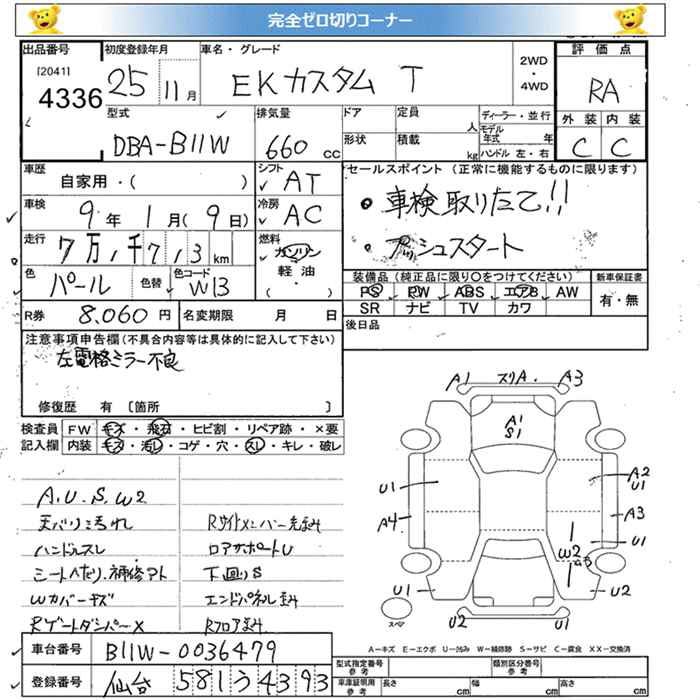 完全ゼロ切りコーナー
出品番号
[2041]
4336
初度登録年月
25 11月
車名・グレード
EKカスタム T
2WD
・
4WD
評価点
RA
外装 内装
C C
型式
DBA-B11W
排気量
660 CC
ドア
定員
人
ディーラー・並行
モデル年式 年
形状
積載
kg
ハンドル 左・右
車歴
自家用・( )
シフト
AT
車検
9年 1月(9日)
冷房
AC
走行
7万,千7,3 km
燃料
ガソリン
軽油
( ・ )
色
パール
色替
色コード
W13
R券 8,060円
名変期限 月 日
セールスポイント (正常に機能するものに限ります)
・車検取りたて!!
・プッシュスタート
装備品(純正品に限り〇をつけてください)
新車保証書
PS PW ABS エアB AW
有・無
SR ナビ TV カワ
後日品
注意事項申告欄(不具合内容等は具体的に記入して下さい)
左電格ミラー不良
修復歴 有 〔箇所 〕
検査員 FW キズ・飛石・ヒビ割・リペア跡・×要
記入欄 内装 キズ・汚レ・コゲ・穴・スレ・キレ・破レ
A.U.S.W2
天バリ汚れ
Rサイドメンバー先歪み
ハンドルスレ
ロアサポートU
シートへたり、補修アト
下回りS
Wカバーキズ
エンドパネル歪み
RゲートダンパーX
Rフロア歪み
A1 スリA. A3
A1
S1
U1
A2
U1
A4
A3
U1
W2
U1
U2
スペア
U2
U1
A-キズ E-エクボ U-凹み W-補修跡 S-サビ C-腐食 XX-交換済
車台番号 B11W-0036479
登録番号 仙台 581う4393
型式指定番号
参考
類別区分番号
参考
車庫証明用
参考
長さ cm
幅 cm
高さ cm